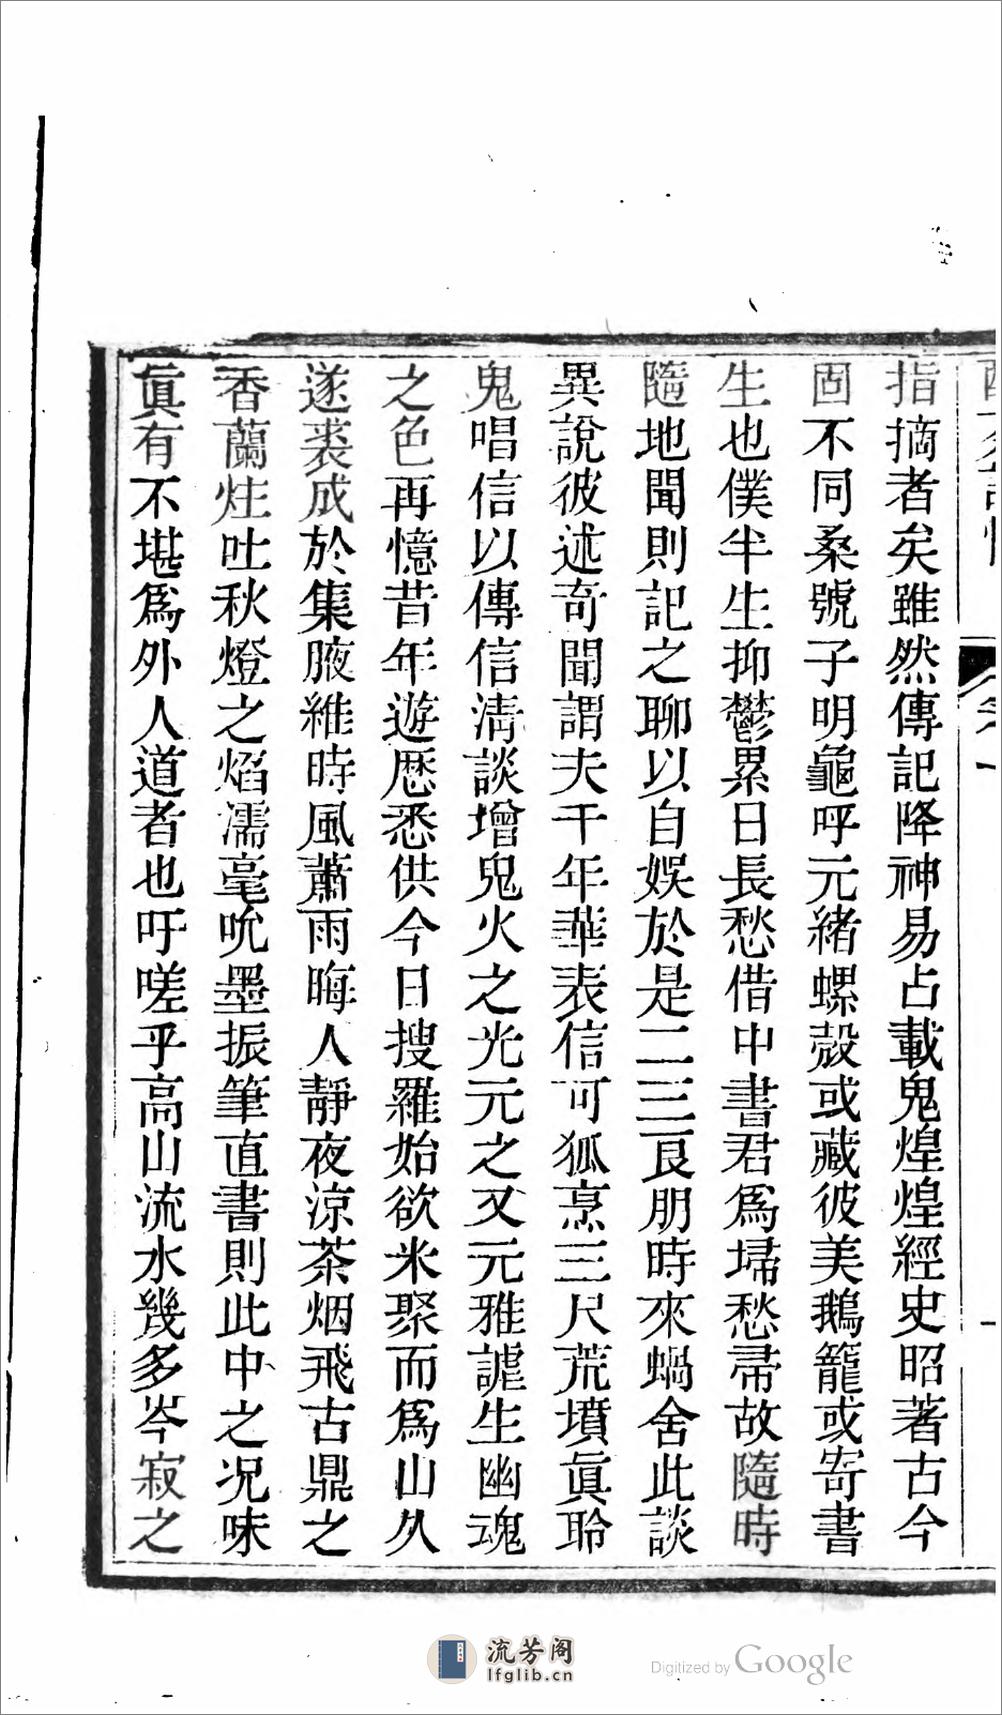 指摘者矣雖然傳記降神易占載鬼煌煌經史昭著古今
固不同桑號子明龜呼元緒螺殼或藏彼美鵝籠或寄書
生也僕半生抑鬱累日長愁借中書君爲埽愁帚故隨時
隨地聞則記之聊以自娛於是二三良朋時來蝸舍此談
異說彼述奇聞謂夫千年華表信可狐烹三尺荒墳眞聆
鬼唱信以傳信淸談增鬼火之光元之又元雅謔生幽魂
之色再憶昔年遊歷悉供今日搜羅始欲米聚而爲山久
遂裘成於集腋維時風蕭雨晦人靜夜涼茶烟飛古鼎之
香蘭炷吐秋燈之焰濡毫吮墨振筆直書則此中之况味
眞有不堪爲外人道者也吁嗟乎高山流水幾多岑寂之
流芳阁
lfglib.cn
Digitized by Google